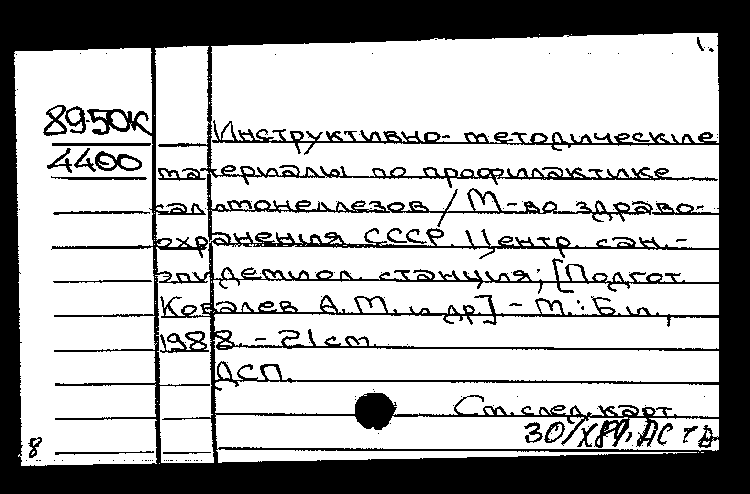 1.
8950К
4400
Инструктивно-методические
материалы по профилактике
сальмонеллезов / М-во здраво-
охранения СССР. Центр. сан.-
эпидемиол. станция; [Подгот.
Ковалев А.М. и др.] - М.: Б.и.,
1988. - 21 cm.
ДСП.
См. след. карт.
30/X89.
8